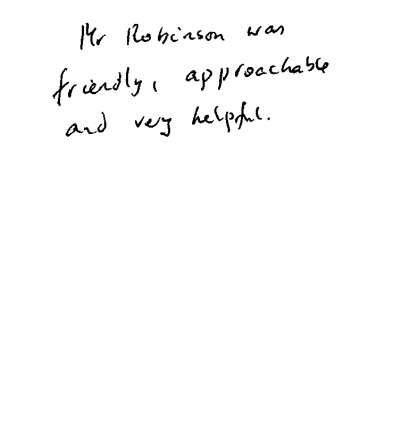 Mr Robinson was
friendly, approachable
and very helpful.